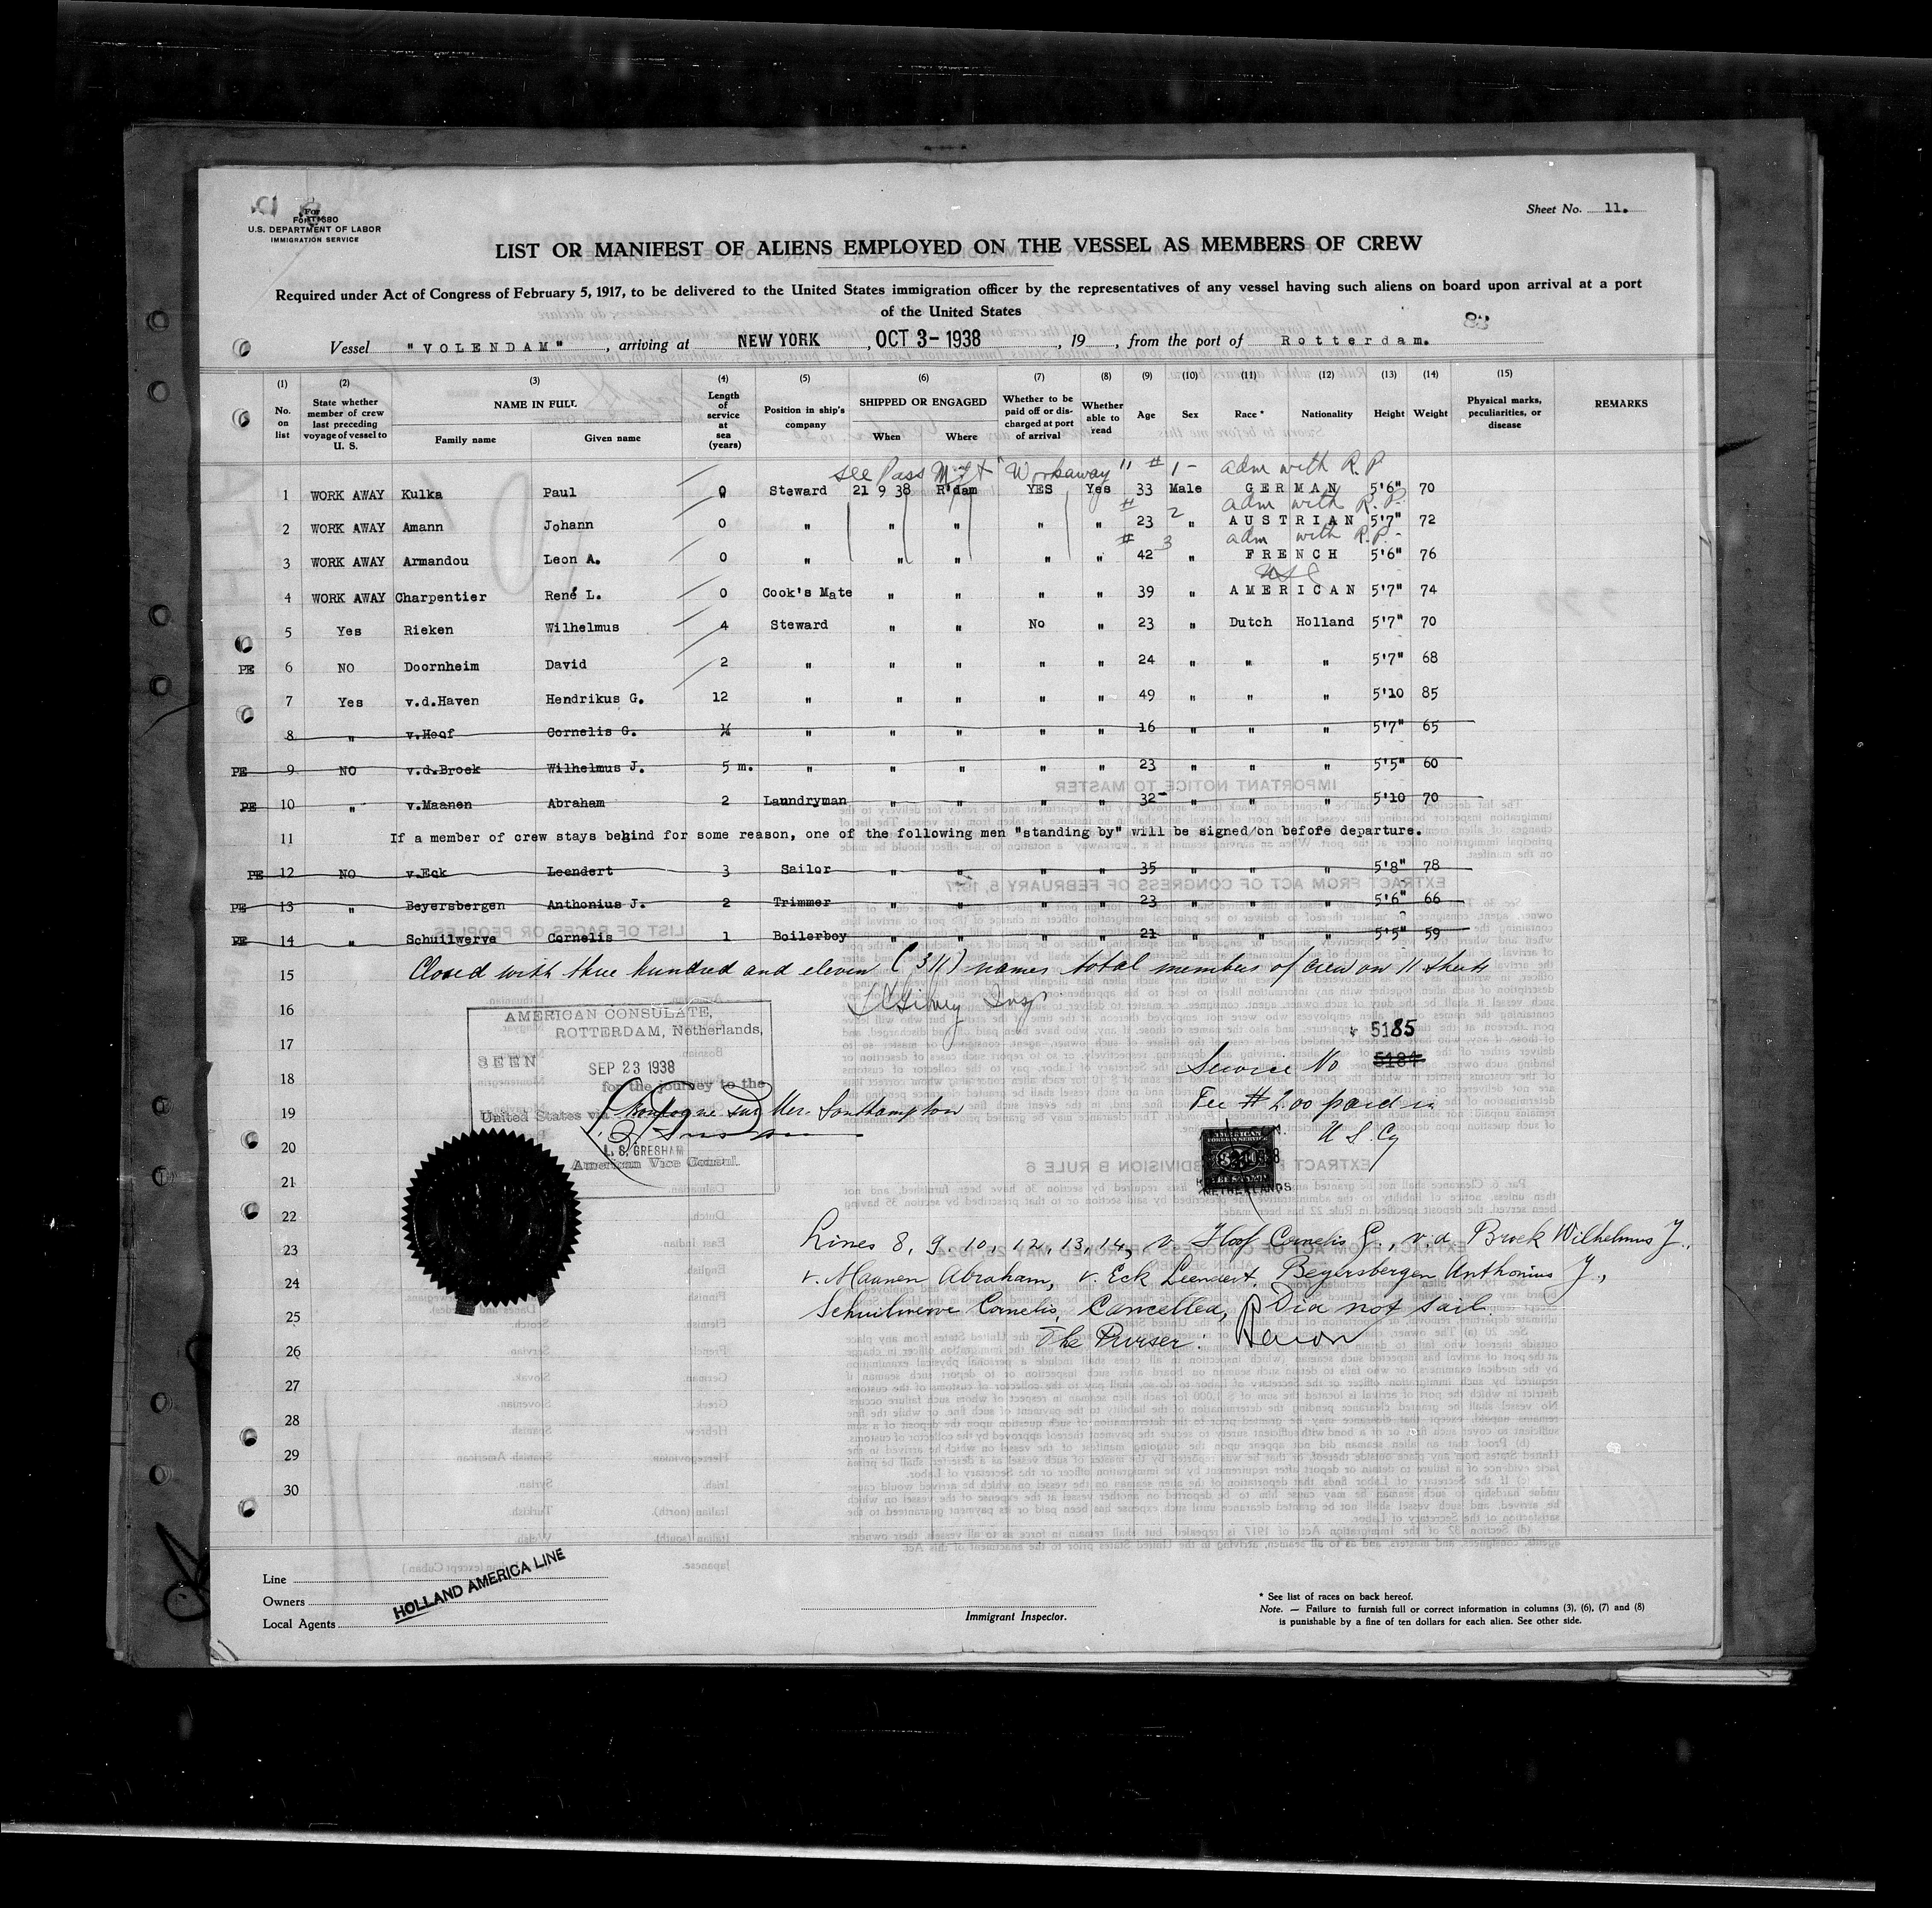 Sheet No. 11.
For
Form 680
U.S. DEPARTMENT OF LABOR
IMMIGRATION SERVICE
LIST OR MANIFEST OF ALIENS EMPLOYED ON THE VESSEL AS MEMBERS OF CREW
Required under Act of Congress of February 5, 1917, to be delivered to the United States immigration officer by the representatives of any vessel having such aliens on board upon arrival at a port
of the United States
83
Vessel "VOLENDAM", arriving at NEW YORK, OCT 3 - 1938, 19, from the port of Rotterdam.
(1) (2) (3) (4) (5) (6) (7) (8) (9) (10) (11) (12) (13) (14) (15)
No. on list State whether member of crew last preceding voyage of vessel to U. S. NAME IN FULL Family name Given name Length of service at sea (years) Position in ship's company SHIPPED OR ENGAGED When Where Whether to be paid off or discharged at port of arrival Whether able to read Age Sex Race * Nationality Height Weight Physical marks, peculiarities, or disease REMARKS
see Pass Mft "Workaway" # 1 - adm with R.P
1 WORK AWAY Kulka Paul 0 Steward 21 9 38 R'dam YES Yes 33 Male GERMAN 5'6" 70
# 2 adm with R.P.
2 WORK AWAY Amann Johann 0 " " " " " 23 " AUSTRIAN 5'7" 72
# 3 adm with R.P. -
3 WORK AWAY Armandou Leon A. 0 " " " " " 42 " FRENCH 5'6" 76
USC
4 WORK AWAY Charpentier René L. 0 Cook's Mate " " " " 39 " AMERICAN 5'7" 74
5 Yes Rieken Wilhelmus 4 Steward " " No " 23 " Dutch Holland 5'7" 70
PE 6 NO Doornheim David 2 " " " " " 24 " " " 5'7" 68
7 Yes v.d.Haven Hendrikus G. 12 " " " " " 49 " " " 5'10 85
8 " v.Hoof Cornelis G. ½ " " " " " 16 " " " 5'7" 65
PE 9 NO v.d.Broek Wilhelmus J. 5 m. " " " " " 23 " " " 5'5" 60
PE 10 " v.Maanen Abraham 2 Laundryman " " " " 32 " " " 5'10 70
11 If a member of crew stays behind for some reason, one of the following men "standing by" will be signed/on before departure.
PE 12 NO v.Eck Leendert 3 Sailor " " " " 35 " " " 5'8" 78
PE 13 " Beyersbergen Anthonius J. 2 Trimmer " " " " 23 " " " 5'6" 66
PE 14 " Schuilwerve Cornelis 1 Boilerboy " " " " 21 " " " 5'5" 59
15 Closed with three hundred and eleven (311) names total members of crew on 11 sheets
16 Insp
17
18
19
20
21
22
23
24
25
26
27
28
29
30
AMERICAN CONSULATE,
ROTTERDAM, Netherlands,
SEEN
SEP 23 1938
for the journey to the
United States via Boulogne sur Mer. Southampton
L. S. GRESHAM
American Vice Consul.
5185
Service No 5184
Fee # 2.00 paid in
U S. Cy
AMERICAN
FOREIGN SERVICE
NETHERLANDS
Lines 8, 9, 10, 12, 13, 14, v. Hoof Cornelis G., v.d. Broek Wilhelmus J.,
v. Maanen Abraham, v. Eck Leendert, Beyersbergen Anthonius J.,
Schuilwerve Cornelis, Cancelled, Did not sail.
The Purser:
Line
Owners
Local Agents
HOLLAND AMERICA LINE
Immigrant Inspector.
* See list of races on back hereof.
Note. — Failure to furnish full or correct information in columns (3), (6), (7) and (8)
is punishable by a fine of ten dollars for each alien. See other side.